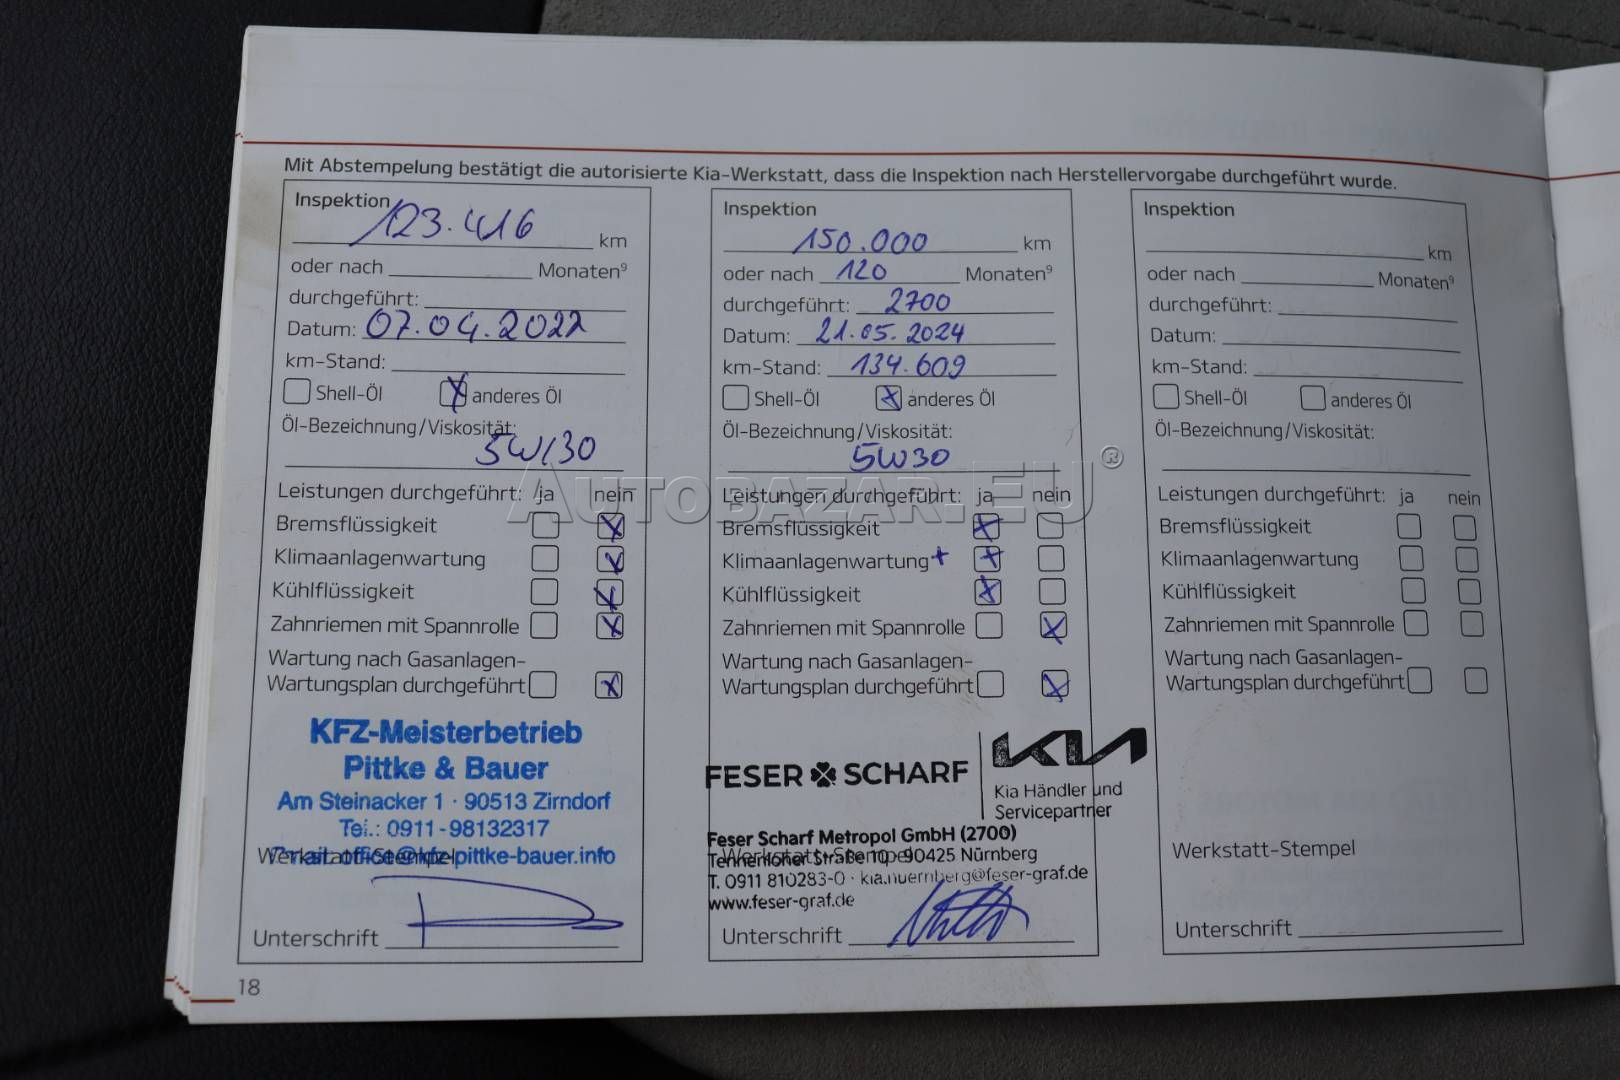 Mit Abstempelung bestätigt die autorisierte Kia-Werkstatt, dass die Inspektion nach Herstellervorgabe durchgeführt wurde.
Inspektion
123.416 km
oder nach Monaten⁹
durchgeführt:
Datum: 07.04.2022
km-Stand:
Shell-Öl anderes Öl
Öl-Bezeichnung/Viskosität:
5W/30
Leistungen durchgeführt: ja nein
Bremsflüssigkeit
Klimaanlagenwartung
Kühlflüssigkeit
Zahnriemen mit Spannrolle
Wartung nach Gasanlagen-
Wartungsplan durchgeführt
KFZ-Meisterbetrieb
Pittke & Bauer
Am Steinacker 1 · 90513 Zirndorf
Tel.: 0911-98132317
office@kfz-pittke-bauer.info
Werkstatt-Stempel
Unterschrift
18
Inspektion
150.000 km
oder nach 120 Monaten⁹
durchgeführt: 2700
Datum: 21.05.2024
km-Stand: 134.609
Shell-Öl anderes Öl
Öl-Bezeichnung/Viskosität:
5W30
Leistungen durchgeführt: ja nein
Bremsflüssigkeit
Klimaanlagenwartung+
Kühlflüssigkeit
Zahnriemen mit Spannrolle
Wartung nach Gasanlagen-
Wartungsplan durchgeführt
FESER SCHARF
KIA
Kia Händler und
Servicepartner
Feser Scharf Metropol GmbH (2700)
Tennenloher Straße 10 · 90425 Nürnberg
Werkstatt-Stempel
T. 0911 810283-0 · kia.nuernberg@feser-graf.de
www.feser-graf.de
Unterschrift
Inspektion
km
oder nach Monaten⁹
durchgeführt:
Datum:
km-Stand:
Shell-Öl anderes Öl
Öl-Bezeichnung/Viskosität:
Leistungen durchgeführt: ja nein
Bremsflüssigkeit
Klimaanlagenwartung
Kühlflüssigkeit
Zahnriemen mit Spannrolle
Wartung nach Gasanlagen-
Wartungsplan durchgeführt
Werkstatt-Stempel
Unterschrift
AUTOBAZAR.EU®